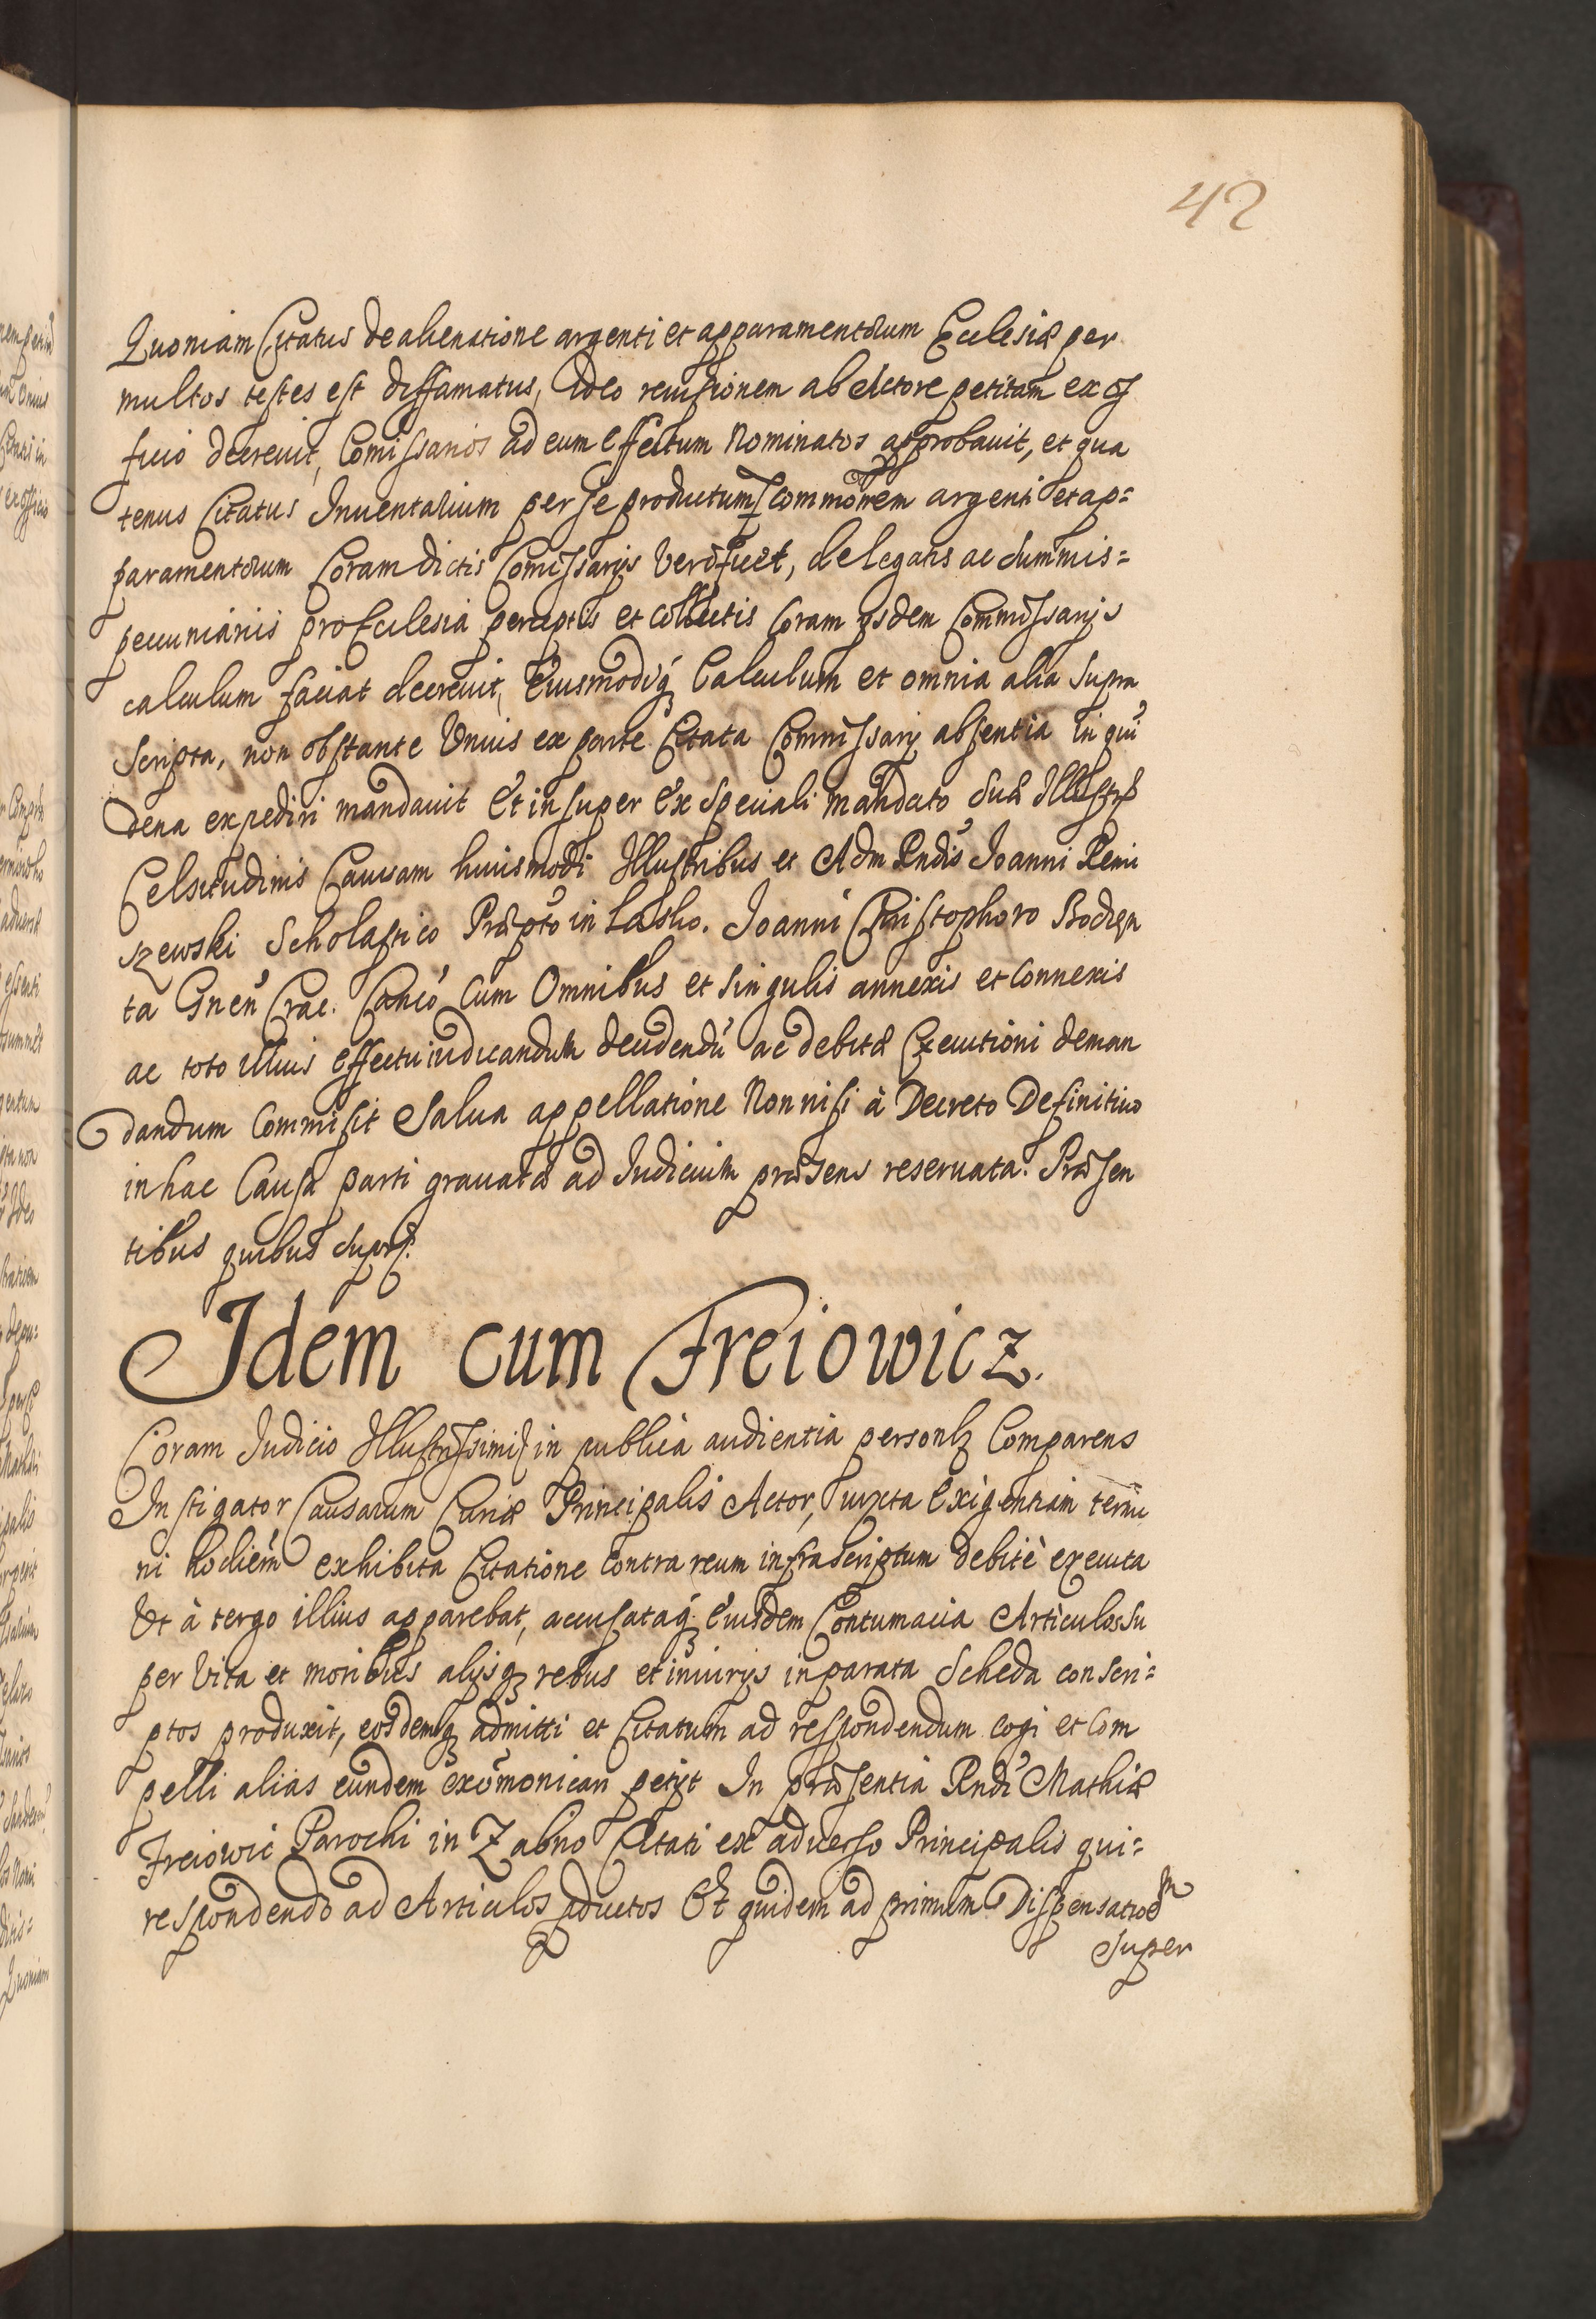 42
Quoniam Citatus de alienatione argenti et apparamentorum Ecclesiæ per
multos testes est diffamatus, Ideo revisionem ab Actore petitam ex of
ficio decrevit, Comissarios ad eum effectum Nominatos approbavit, et qua
tenus Citatus Inventarium per se productum argenti et ap=
paramentorum Coram dictis Comissarijs verificet, de legatis ac summis=
pecuniarijs pro Ecclesia perceptis et collectis Coram ijsdem Commissarijs
calculum faciat decrevit, Eiusmodiq; Calculum et omnia alia supra
scripta, non obstante Unius ex parte Citata Commissarij absentia in qui
dena expediri mandavit Et insuper Ex speciali mandato Suæ Illustræ
Celsitudinis Causam huiusmodi Illustribus et Adm Rndis Joanni Remi
szewski Scholastico Præpto in Lasko. Joanni Christophoro Bodzęn
ta Gnen Crac. Canco Cum Omnibus et singulis annexis et connexis
ac toto illius effectu iudicandum decidendū ac debitæ Executioni deman
dandum Commisit Salva appellatione Non nisi à Decreto Definitivo
in hac Causa parti gravatæ ad Judicium præsens reservata. Præsen
tibus quibus supra.
Idem cum Freiowicz.
Coram Judicio Illustrissimi in publica audientia personlr Comparens
Instigator Causarum Curiæ Principalis Actor, iuxta Exigentiam termi
ni hodierni exhibita Citatione contra reum infrascriptum debitè executa
Ut à tergo illius apparebat, accusataq; Eiusdem Contumacia Articulos su
per Vita et moribus alijsq; rebus et iniurijs in parata Scheda conscri=
ptos produxit, eosdemq; admitti et Citatum ad respondendum cogi et com
pelli alias eundem excomonicari petijt In præsentia Rndi Mathiæ
Freiowic Parochi in Zabno Citati ex adverso Principalis qui=
respondendo ad Articulos pductos Et quidem ad primum Dispensatioēm
super